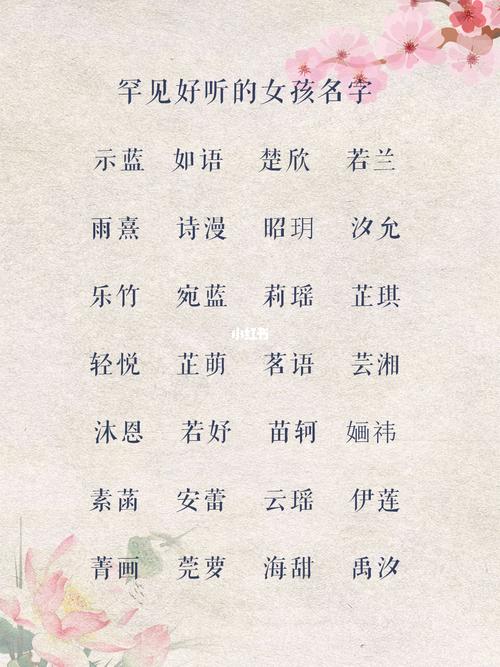 罕见好听的女孩名字
示蓝 如语 楚欣 若兰
雨熹 诗漫 昭玥 汐允
乐竹 宛蓝 莉瑶 芷琪
小红书
轻悦 芷萌 茗语 芸湘
沐恩 若妤 苗轲 婳祎
素菡 安蕾 云瑶 伊莲
菁画 莞萝 海甜 禹汐